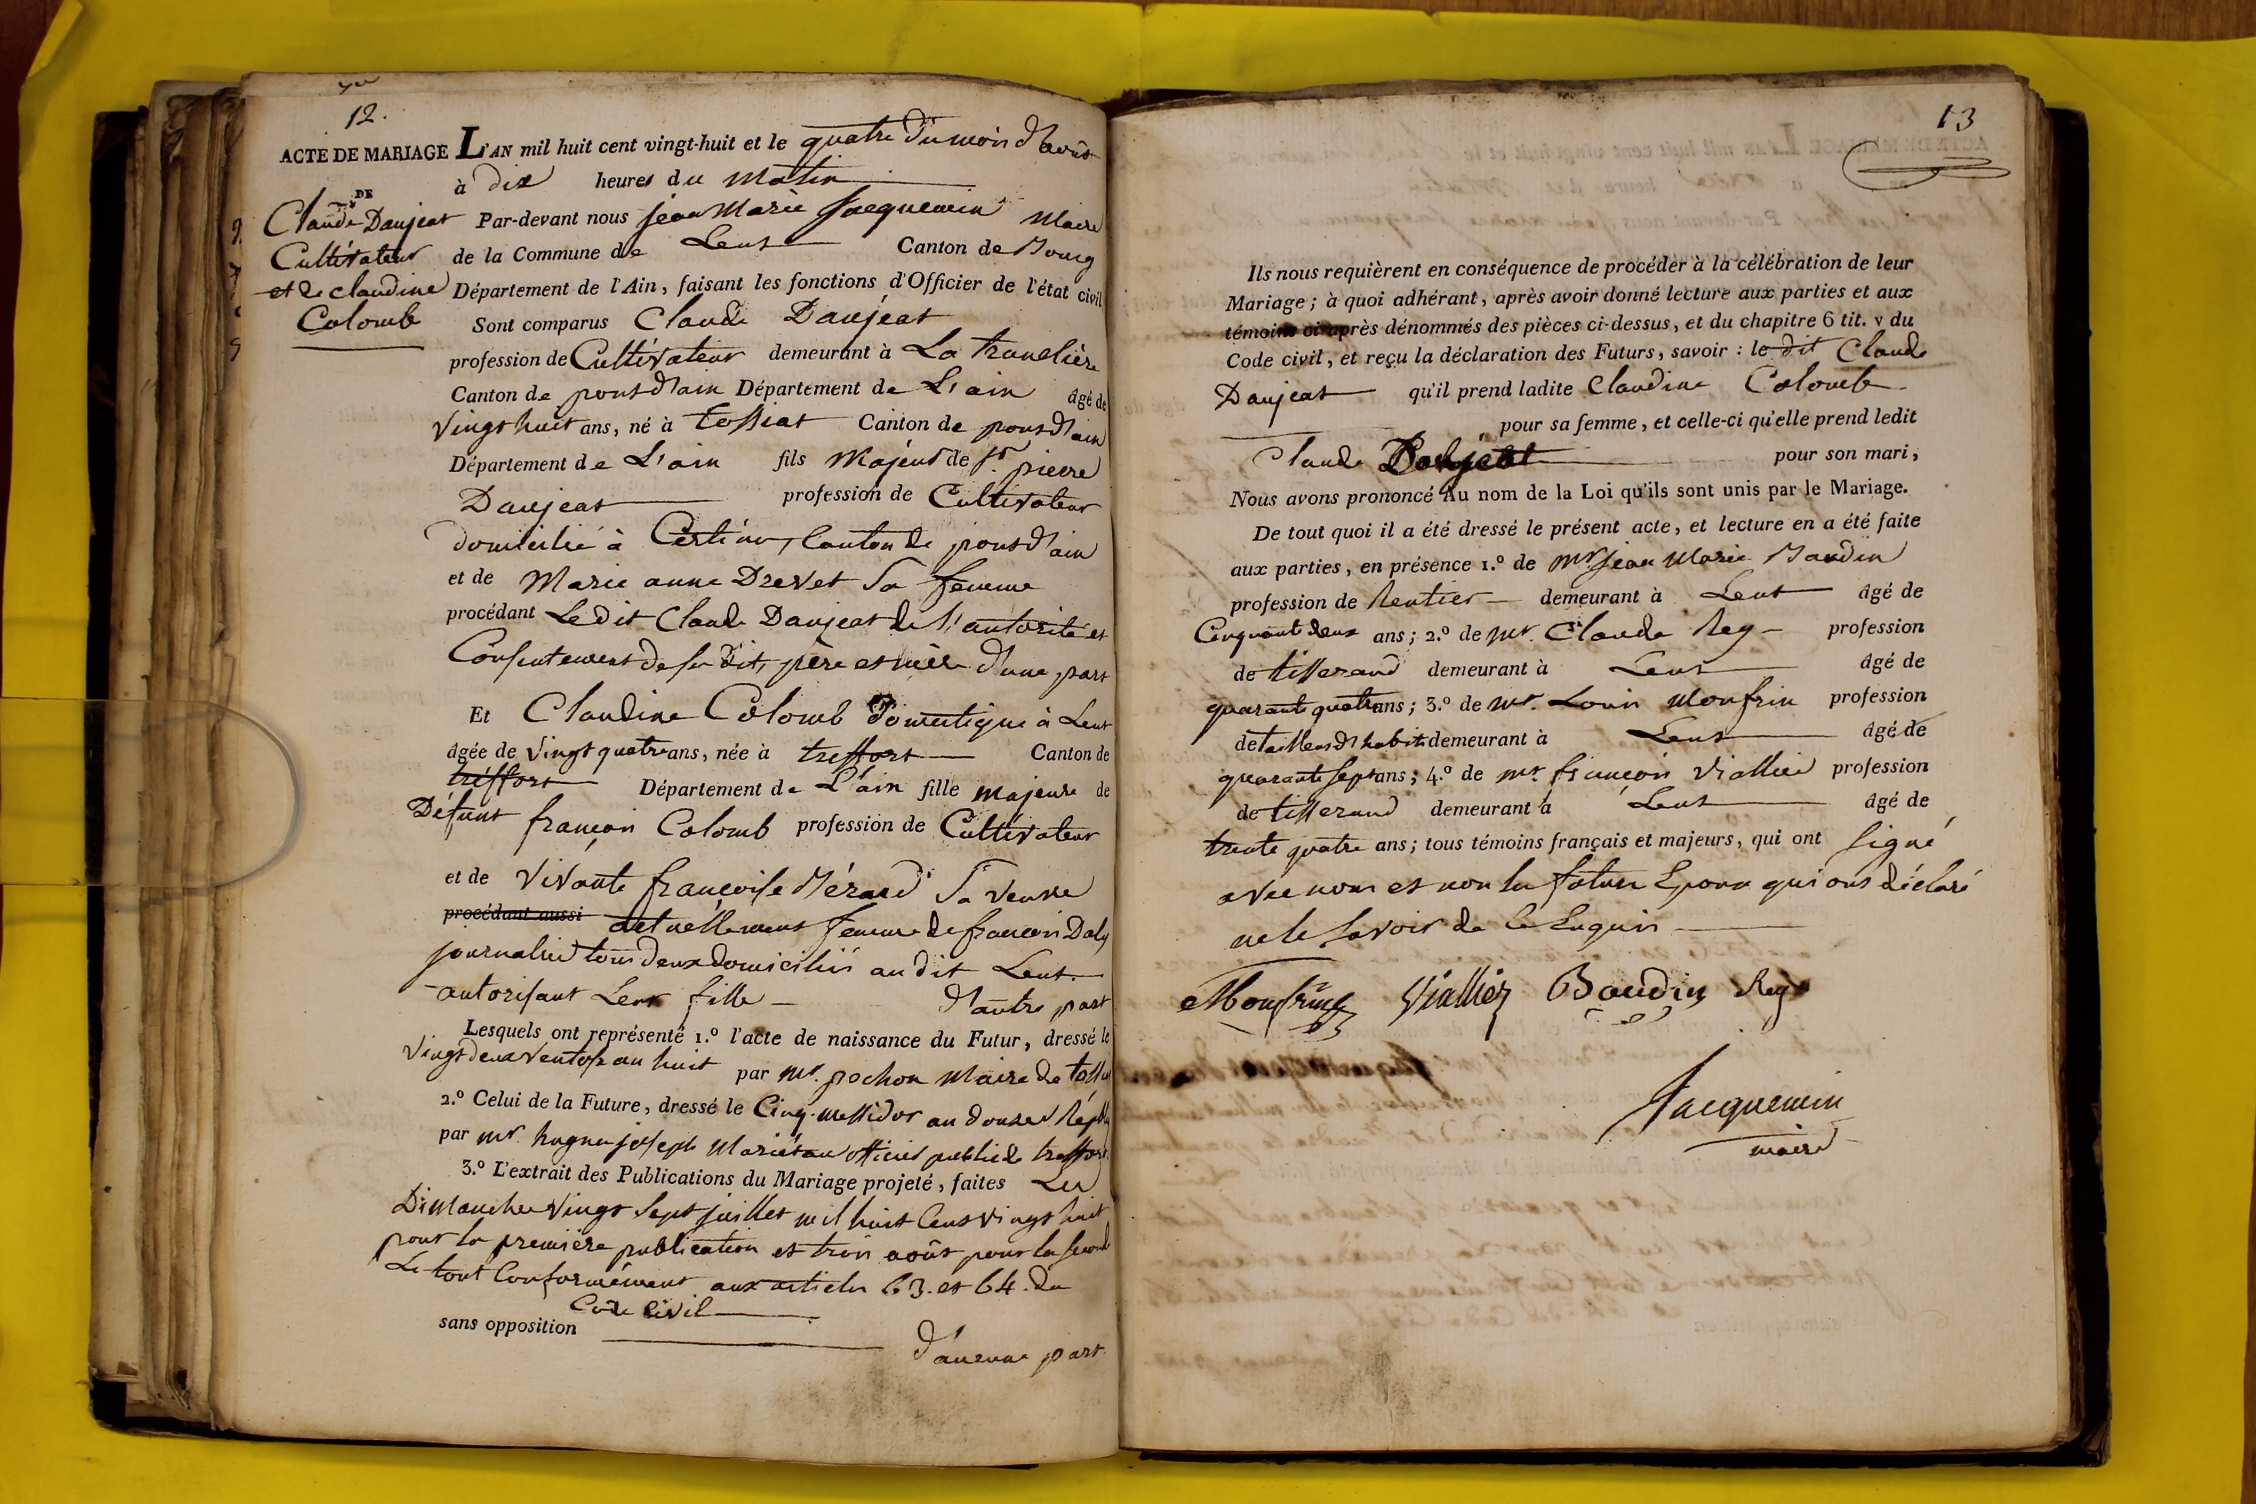 12.
ACTE DE MARIAGE L'AN mil huit cent vingt-huit et le quatre du mois d'août
à dix heures du matin
DE
Claude Daujeat
Cultivateur
et de claudine
Colomb
Par-devant nous jean Marie Jacquemin Maire
de la Commune de Lent Canton de Bourg
Département de l'Ain, faisant les fonctions d'Officier de l'état civil
Sont comparus Claude Daujeat
profession de Cultivateur demeurant à La tranclière
Canton de pont d'ain Département de L'ain âgé de
vingt huit ans, né à tossiat Canton de pont d'ain
Département de L'ain fils Majeur de pierre
Daujeat profession de Cultivateur
domicilié à Certines, Canton de pont d'ain
et de Marie anne Drevet Sa femme
procédant Ledit Claude Daujeat de l'autorité et
Consentement de ses dits père et mère d'une part
Et Claudine Colomb Domestique à Lent
âgée de vingt quatre ans, née à treffort Canton de
treffort Département de L'ain fille majeure de
Défunt françois Colomb profession de Cultivateur
et de vivante françoise Sa veuve
procédant aussi actuellement femme de françois Daly
journalier tous deux domiciliés au dit Lent.
autorisant Leur fille d'autre part
Lesquels ont représenté 1.º l'acte de naissance du Futur, dressé le
vingt deux ventose an huit par mr. pochon Maire de toss
2.º Celui de la Future, dressé le Cinq messidor an douze Répb
par mr. hugues joseph officier public de treffort
3.º L'extrait des Publications du Mariage projeté, faites Les
Dimanches vingt Sept juillet mil huit Cent vingt huit
pour la première publication et trois août pour la second
Le tout Conformément aux articles 63. et 64. du
Code Civil
sans opposition
d'aucune part.
13
Ils nous requièrent en conséquence de procéder à la célébration de leur
Mariage; à quoi adhérant, après avoir donné lecture aux parties et aux
témoins ci-après dénommés des pièces ci-dessus, et du chapitre 6 tit. v du
Code civil, et reçu la déclaration des Futurs, savoir : le dit Claude
Daujeat qu'il prend ladite Claudine Colomb
pour sa femme, et celle-ci qu'elle prend ledit
Claude Daujeat pour son mari,
Nous avons prononcé Au nom de la Loi qu'ils sont unis par le Mariage.
De tout quoi il a été dressé le présent acte, et lecture en a été faite
aux parties, en présence 1.º de mr jean Marie Baudin
profession de Rentier demeurant à Lent âgé de
Cinquante deux ans; 2.º de mr. Claude Rey profession
de tisserand demeurant à Lent âgé de
quarante quatre ans; 3.º de mr. Louis Monfrin profession
de tailleur d'habits demeurant à Lent âgé de
quarante sept ans; 4.º de mr. françois Viallier profession
de tisserand demeurant à Lent âgé de
trente quatre ans; tous témoins français et majeurs, qui ont Signé
avec nous et non les futurs Epoux qui ont déclaré
ne le Savoir de ce Enquis
Monfring Viallier Baudin Rey
Jacquemin
maire